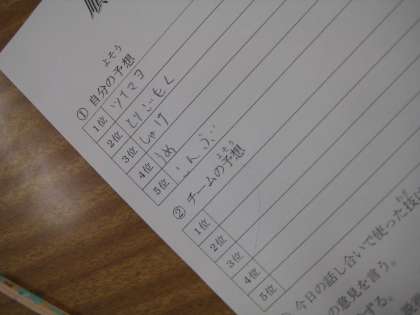 ① 自分の予想
よそう
1位 ツナマヨ
2位 とりごもく
3位 しゃけ
4位 うめ
5位 こんぶ
② チームの予想
よそう
1位
2位
3位
4位
5位
今日の話し合いで使った技
の意見を言う。
する。